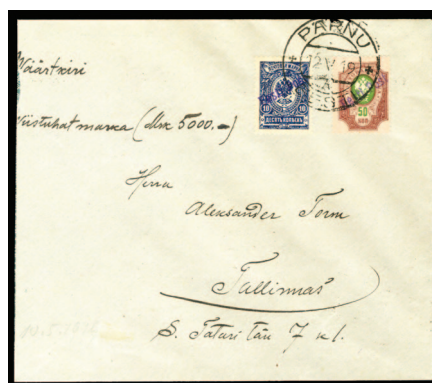 PÄRNU
12 V 19
10 10
ДЕСЯТЬ КОПѢЕКЪ
50
КОП
Wäärtkiri
Wiistuhat marka (Mrk 5000.-)
Herra
Aleksander Torm
Tallinnas
S. Tatari tän 7 k 1.